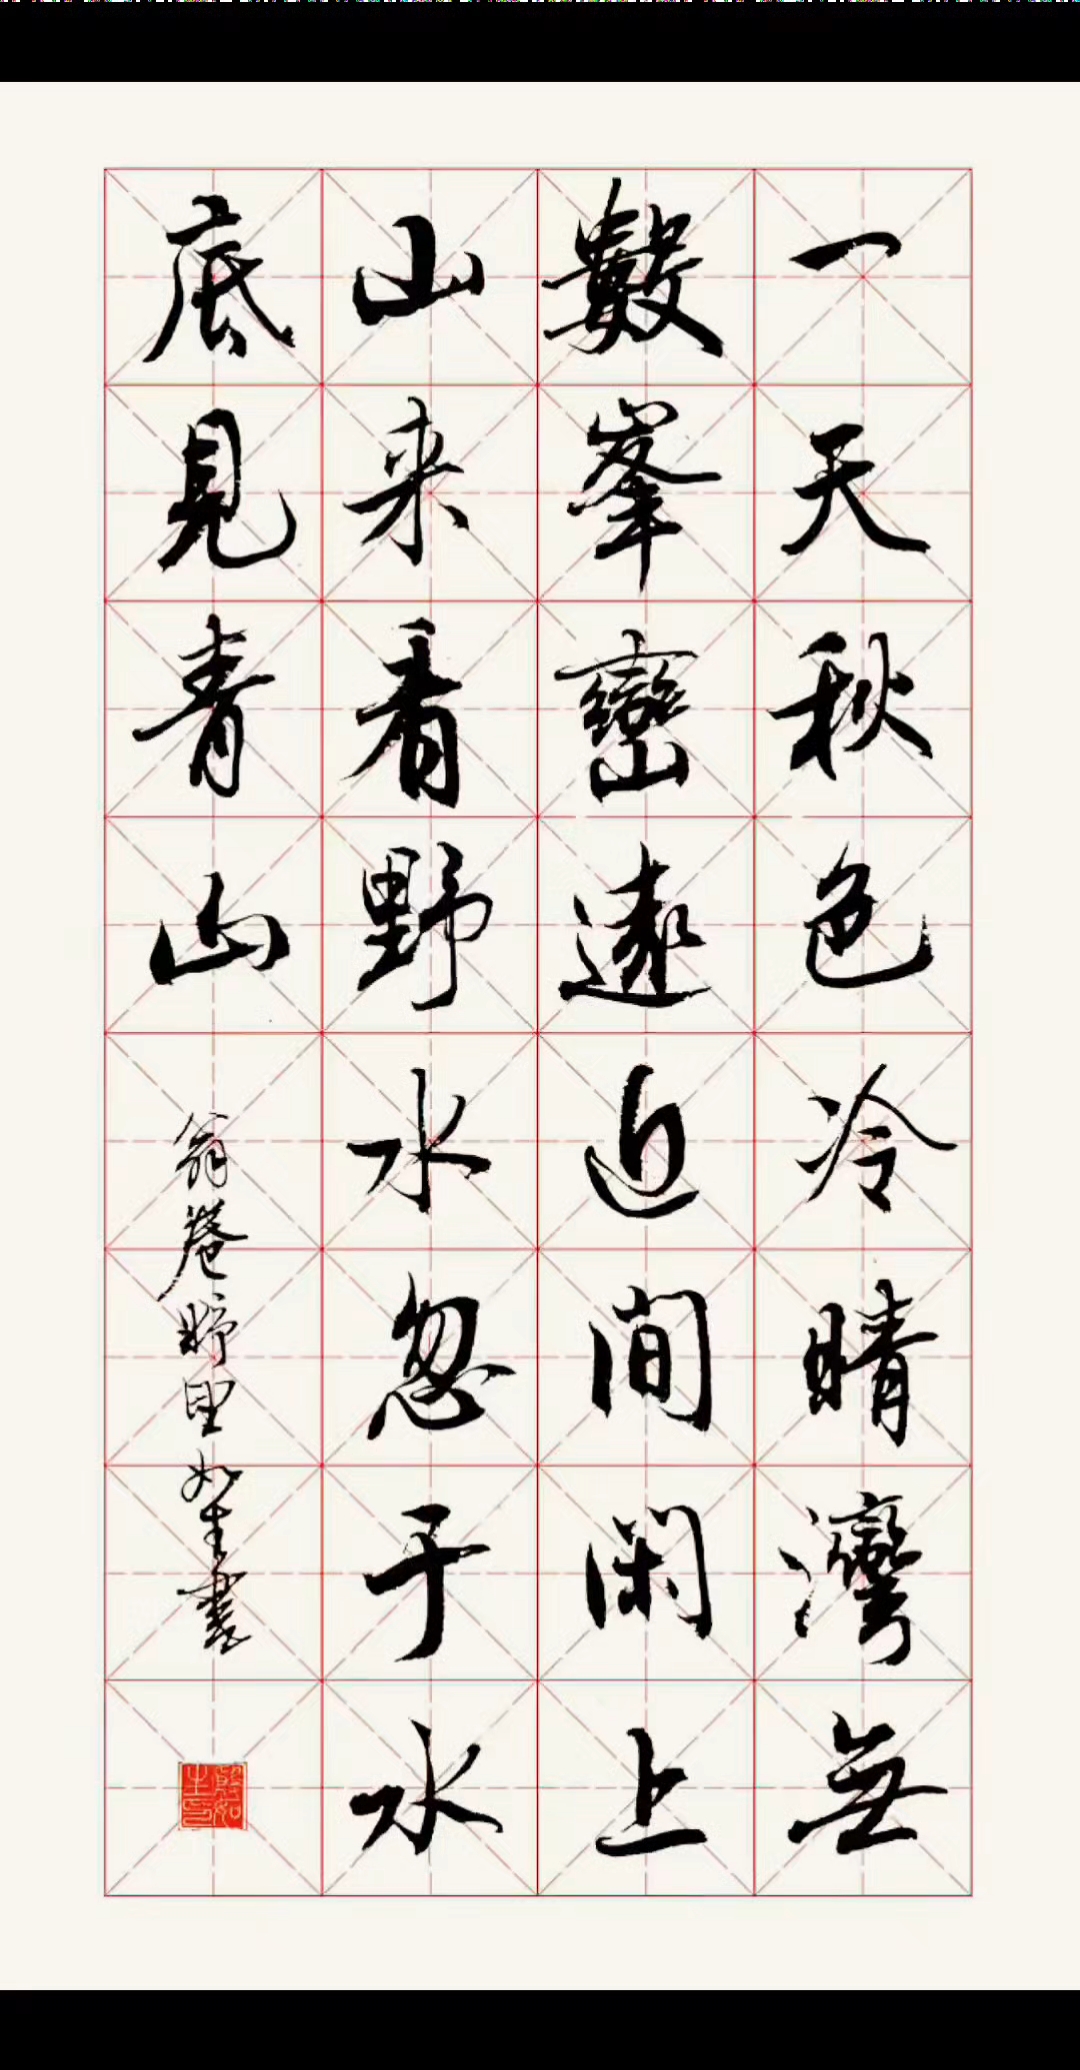 一天秋色冷晴灣無
數峯巒遠近間閑上
山来看野水忽于水
底見青山
翁卷野望如生書
殷如生印